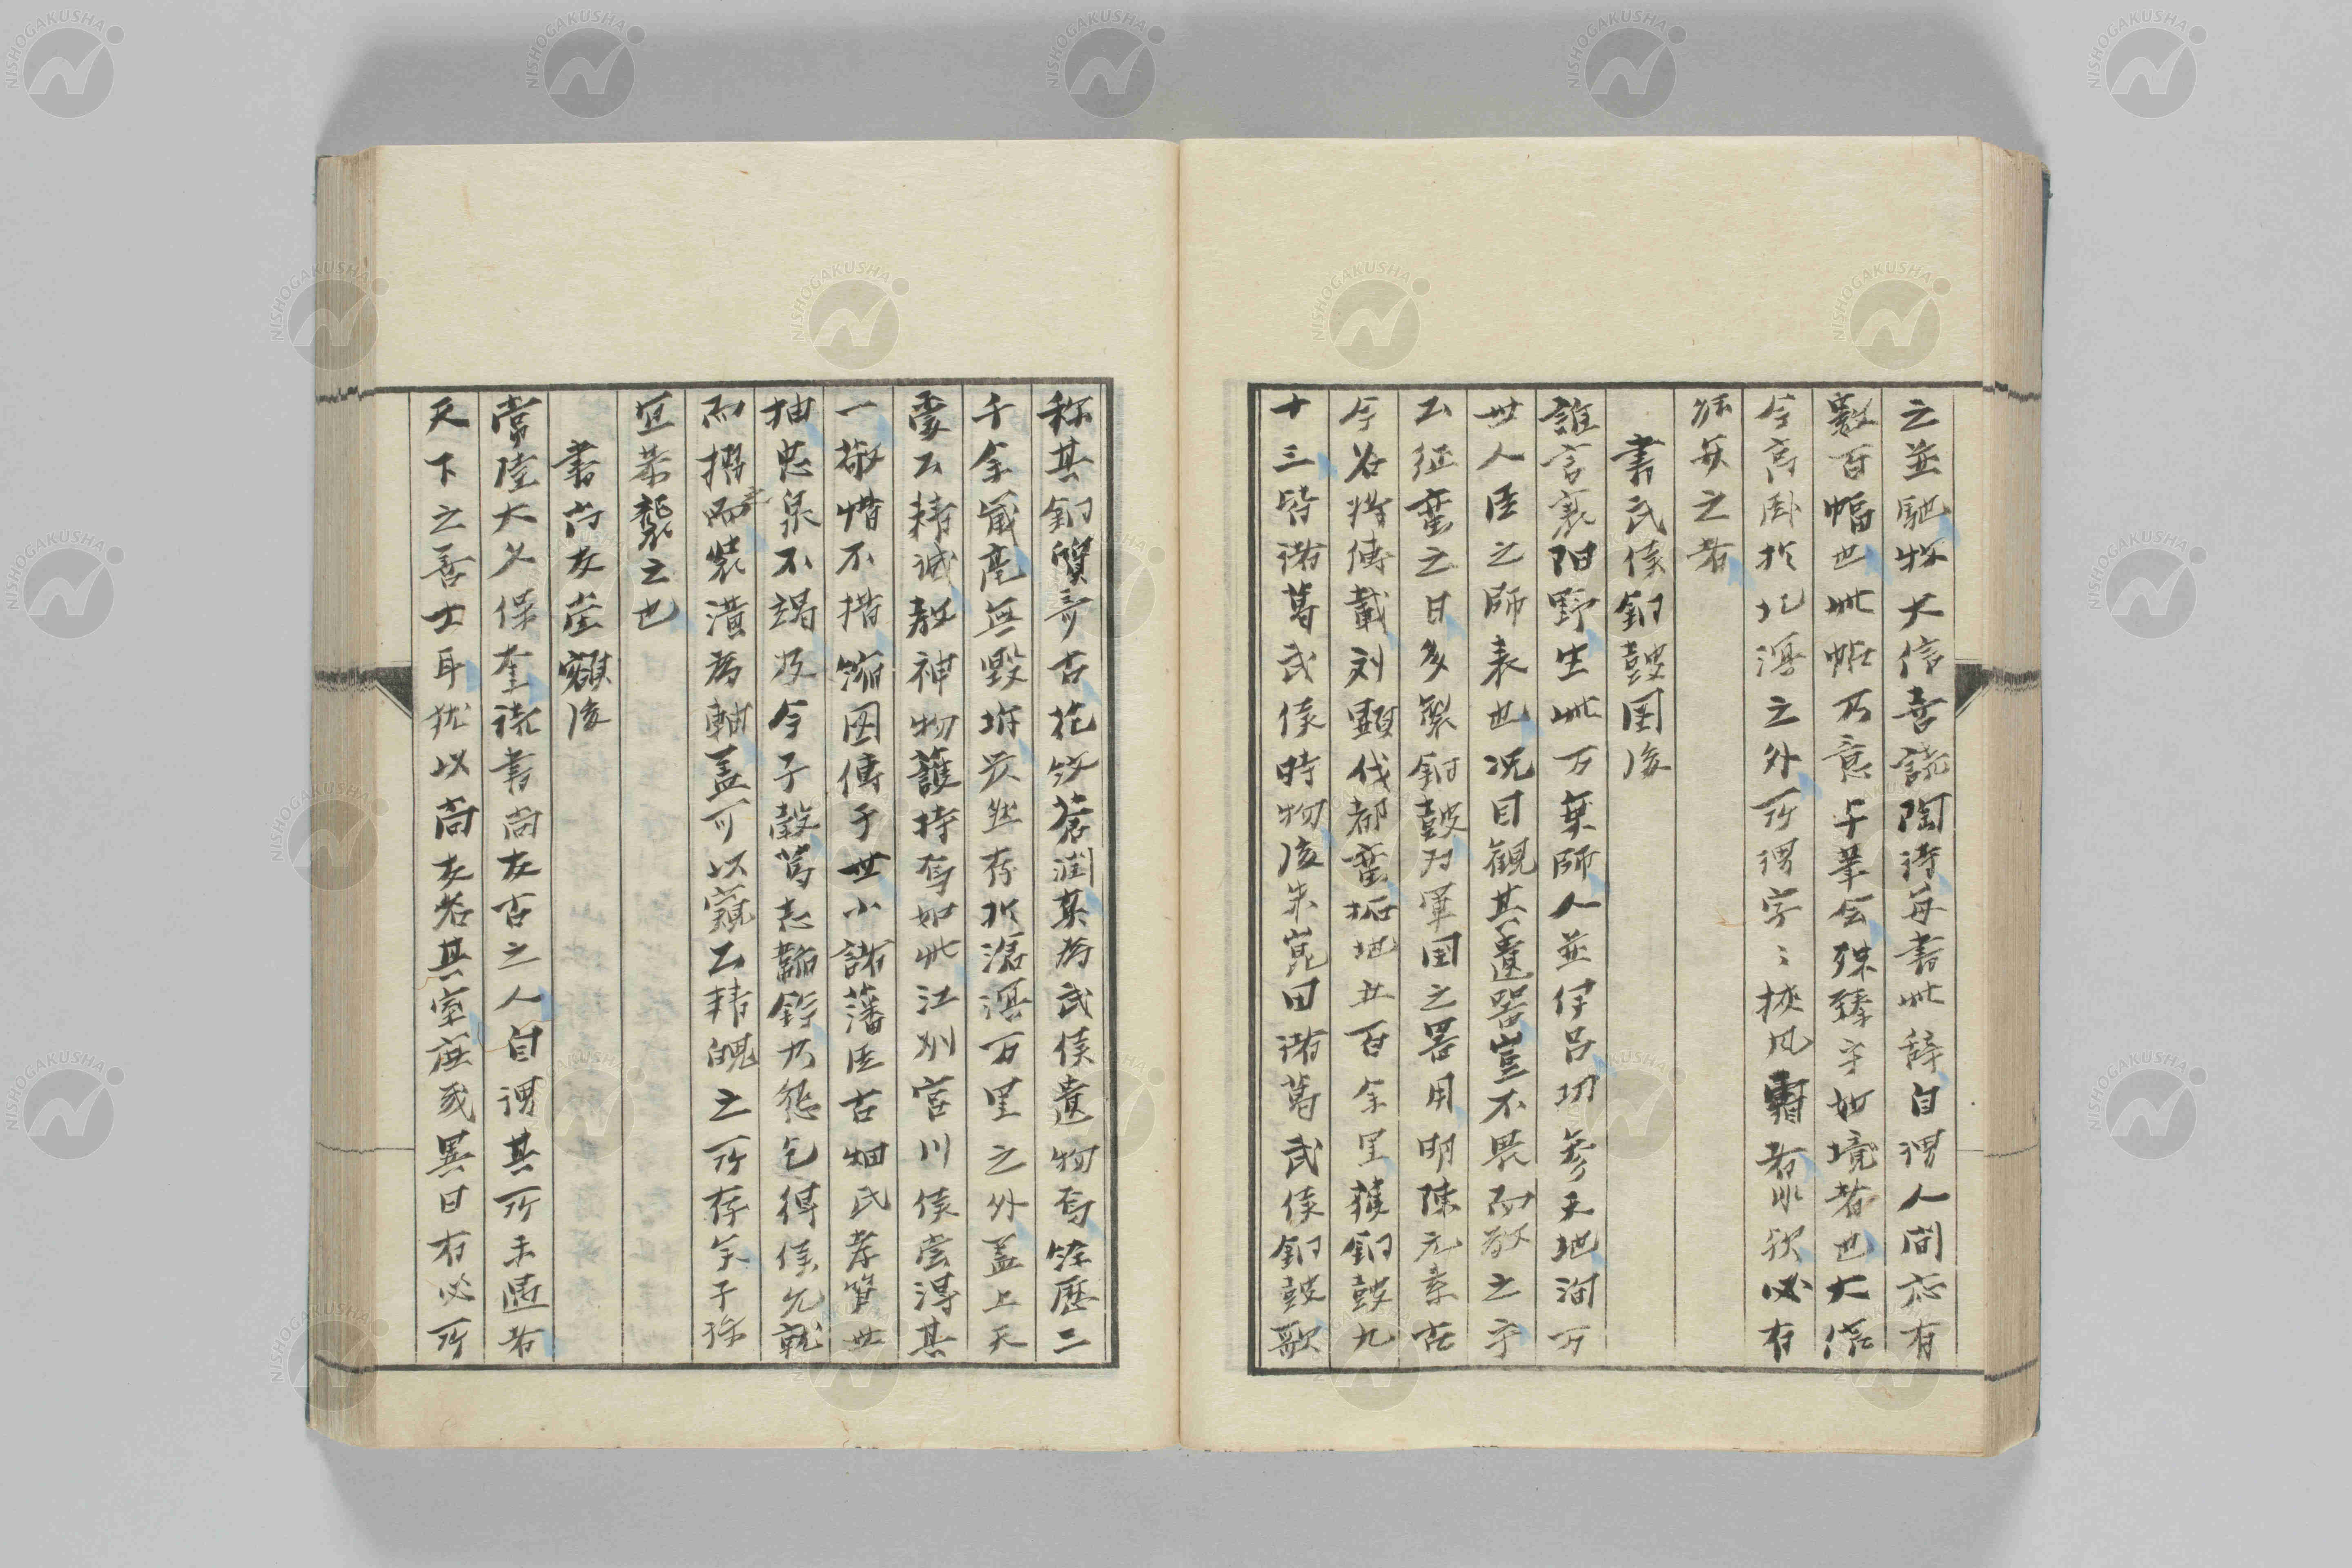 之並馳物大信喜読陶詩每書此辞自謂人間應有
数百幅也此帖乃意与筆会殊臻字如境者也大信
今高臥於北溟之外所謂字〻挾风霜者水欲必有
能弁之者
書武侯銅鼓図後
誰言襄陽野生此万乗師人並伊呂功参天地洵万
世人臣之師表也况目観其遺器豈不畏而敬之乎
公征蛮之日多製銅鼓为軍国之器用明陳元素古
今名将傳載刘顕伐都蛮拓地五百余里獲銅鼓九
十三皆諸葛武侯時物後朱崑田諸葛武侯銅鼓歌
称其銅質奇古花紋蒼潤某為武侯遺物焉錐歷二
千余歳毫無毀坼炭然存於滄溟万里之外蓋上天
霊公精誠敎神物護持焉如此江州宮川侯嘗得其
一敬惜不措縮図傳于世小諸藩臣古畑氏孝算世
抽忠泉不竭及今子穀蔦志韜鈴乃懇乞得侯允就
而搨而装潢為軸蓋可以窺公精魄之所存矣子孫
宜恭襲之也
書尚友堂額後
常陸大久保奎読書尚友古之人自謂其所未遇者
天下之善士耳犹以尚友名其室庶或異日有必所